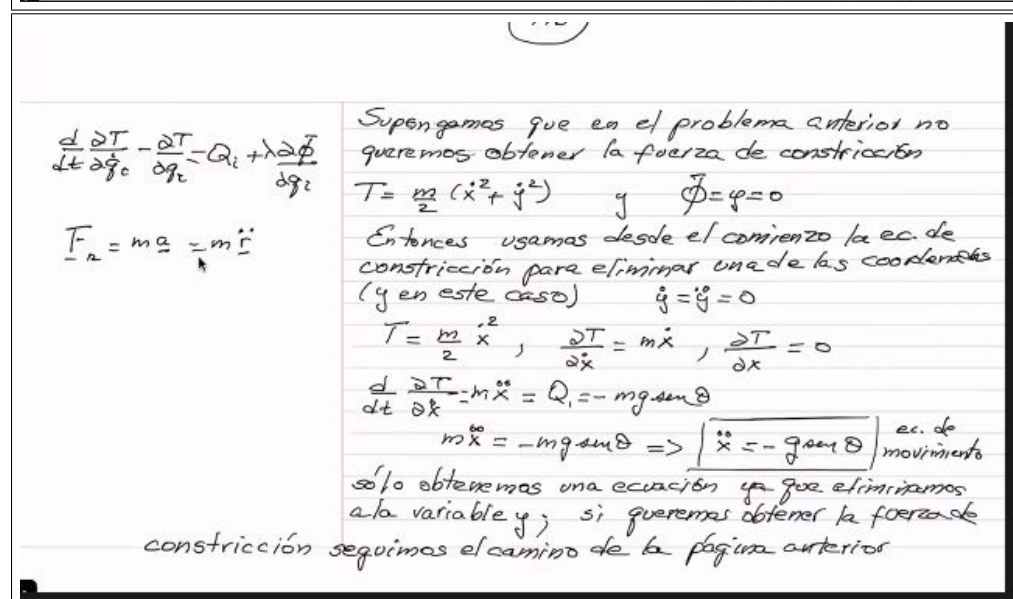 d/dt ∂T/∂q̇ᵢ - ∂T/∂qᵢ = Qᵢ + λ∂Φ̄/∂qᵢ
F̲ₙ = m a̲ = m r̲̈
Supongamos que en el problema anterior no
queremos obtener la fuerza de constricción
T = m/2 (ẋ² + ẏ²) y Φ̄ = y = 0
Entonces usamos desde el comienzo la ec. de
constricción para eliminar una de las coordenadas
(y en este caso) ẏ = ÿ = 0
T = m/2 ẋ² , ∂T/∂ẋ = mẋ , ∂T/∂x = 0
d/dt ∂T/∂ẋ = mẍ = Q₁ = - mg sen θ
mẍ = - mg sen θ => ẍ = - g sen θ ec. de
movimiento
sólo obtenemos una ecuación ya que eliminamos
a la variable y; si queremos obtener la fuerza de
constricción seguimos el camino de la página anterior